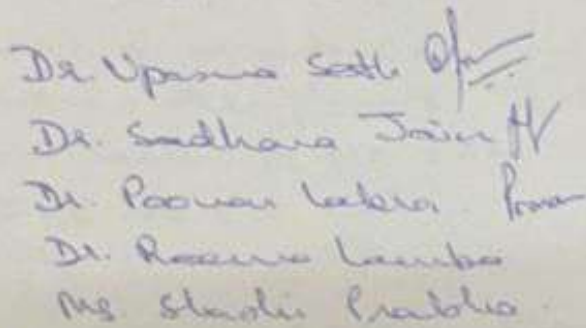 Dr Upasna Seth
Dr. Sadhana Jain
Dr. Poonam
Dr. Reema Lamba
Ms. Shashi Prabha